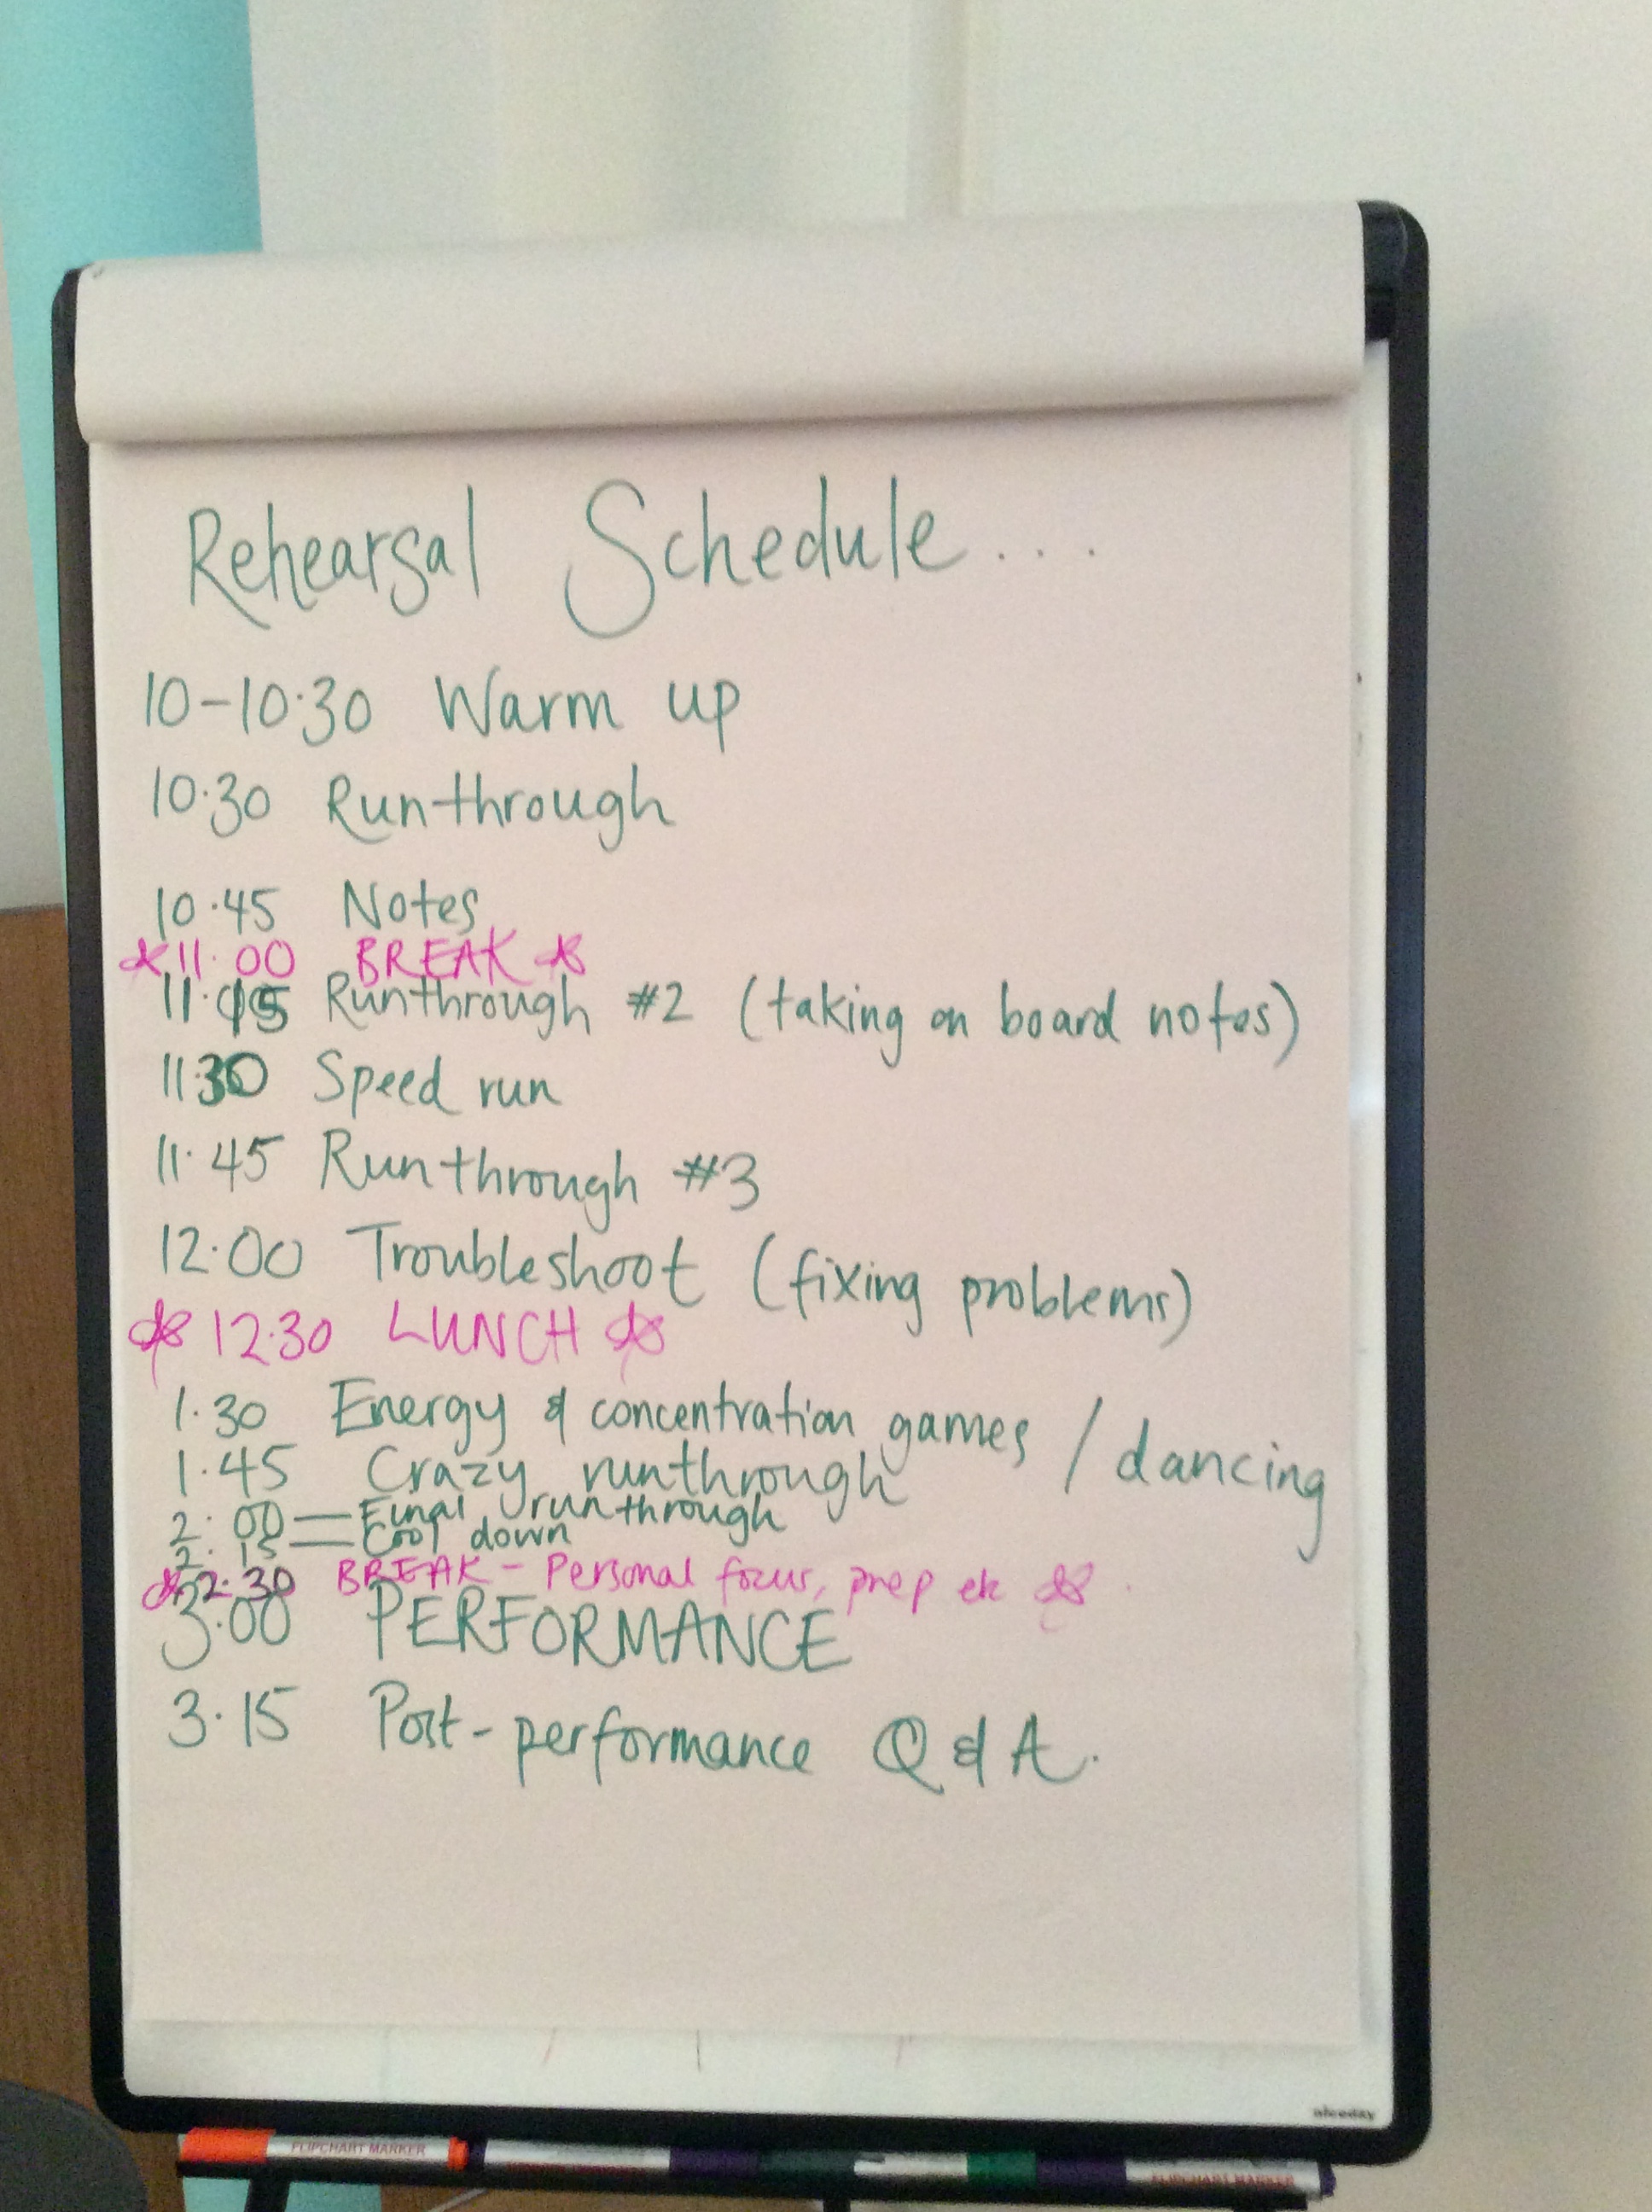 Rehearsal Schedule....
10-10:30 Warm up
10.30 Runthrough
10.45 Notes
*11.00 BREAK *
11.15 Runthrough #2 (taking on board notes)
11.30 Speed run
11.45 Runthrough #3
12.00 Troubleshoot (fixing problems)
* 12.30 LUNCH *
1.30 Energy & concentration games / dancing
1.45 Crazy runthrough
2:00 — Final runthrough
2:15 — Cool down
*2:30 BREAK - Personal focus, prep etc *
3.00 PERFORMANCE
3.15 Post-performance Q & A.
niceday
FLIPCHART MARKER
FLIPCHART MARKER